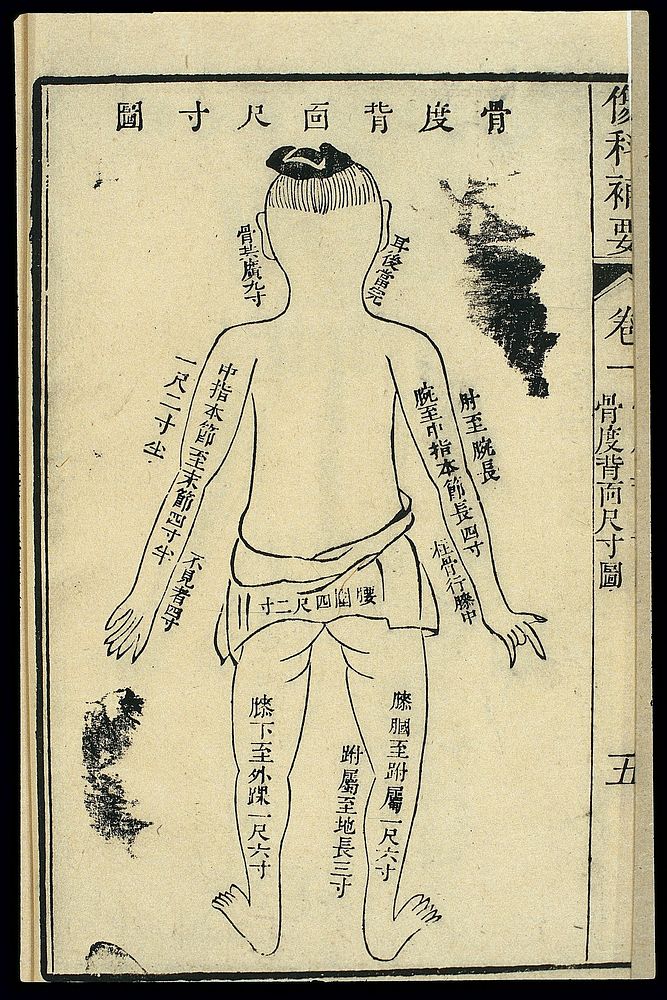 骨度背面尺寸圖
傷科補要
卷一
骨度背面尺寸圖
五
耳後當完
骨共廣九寸
肘至腕長
一尺二寸半
腕至中指本節長四寸
中指本節至末節四寸半
柱骨行腋中
不見者四寸
腰圍四尺二寸
膝膕至跗屬一尺六寸
跗屬至地長三寸
膝下至外踝一尺六寸